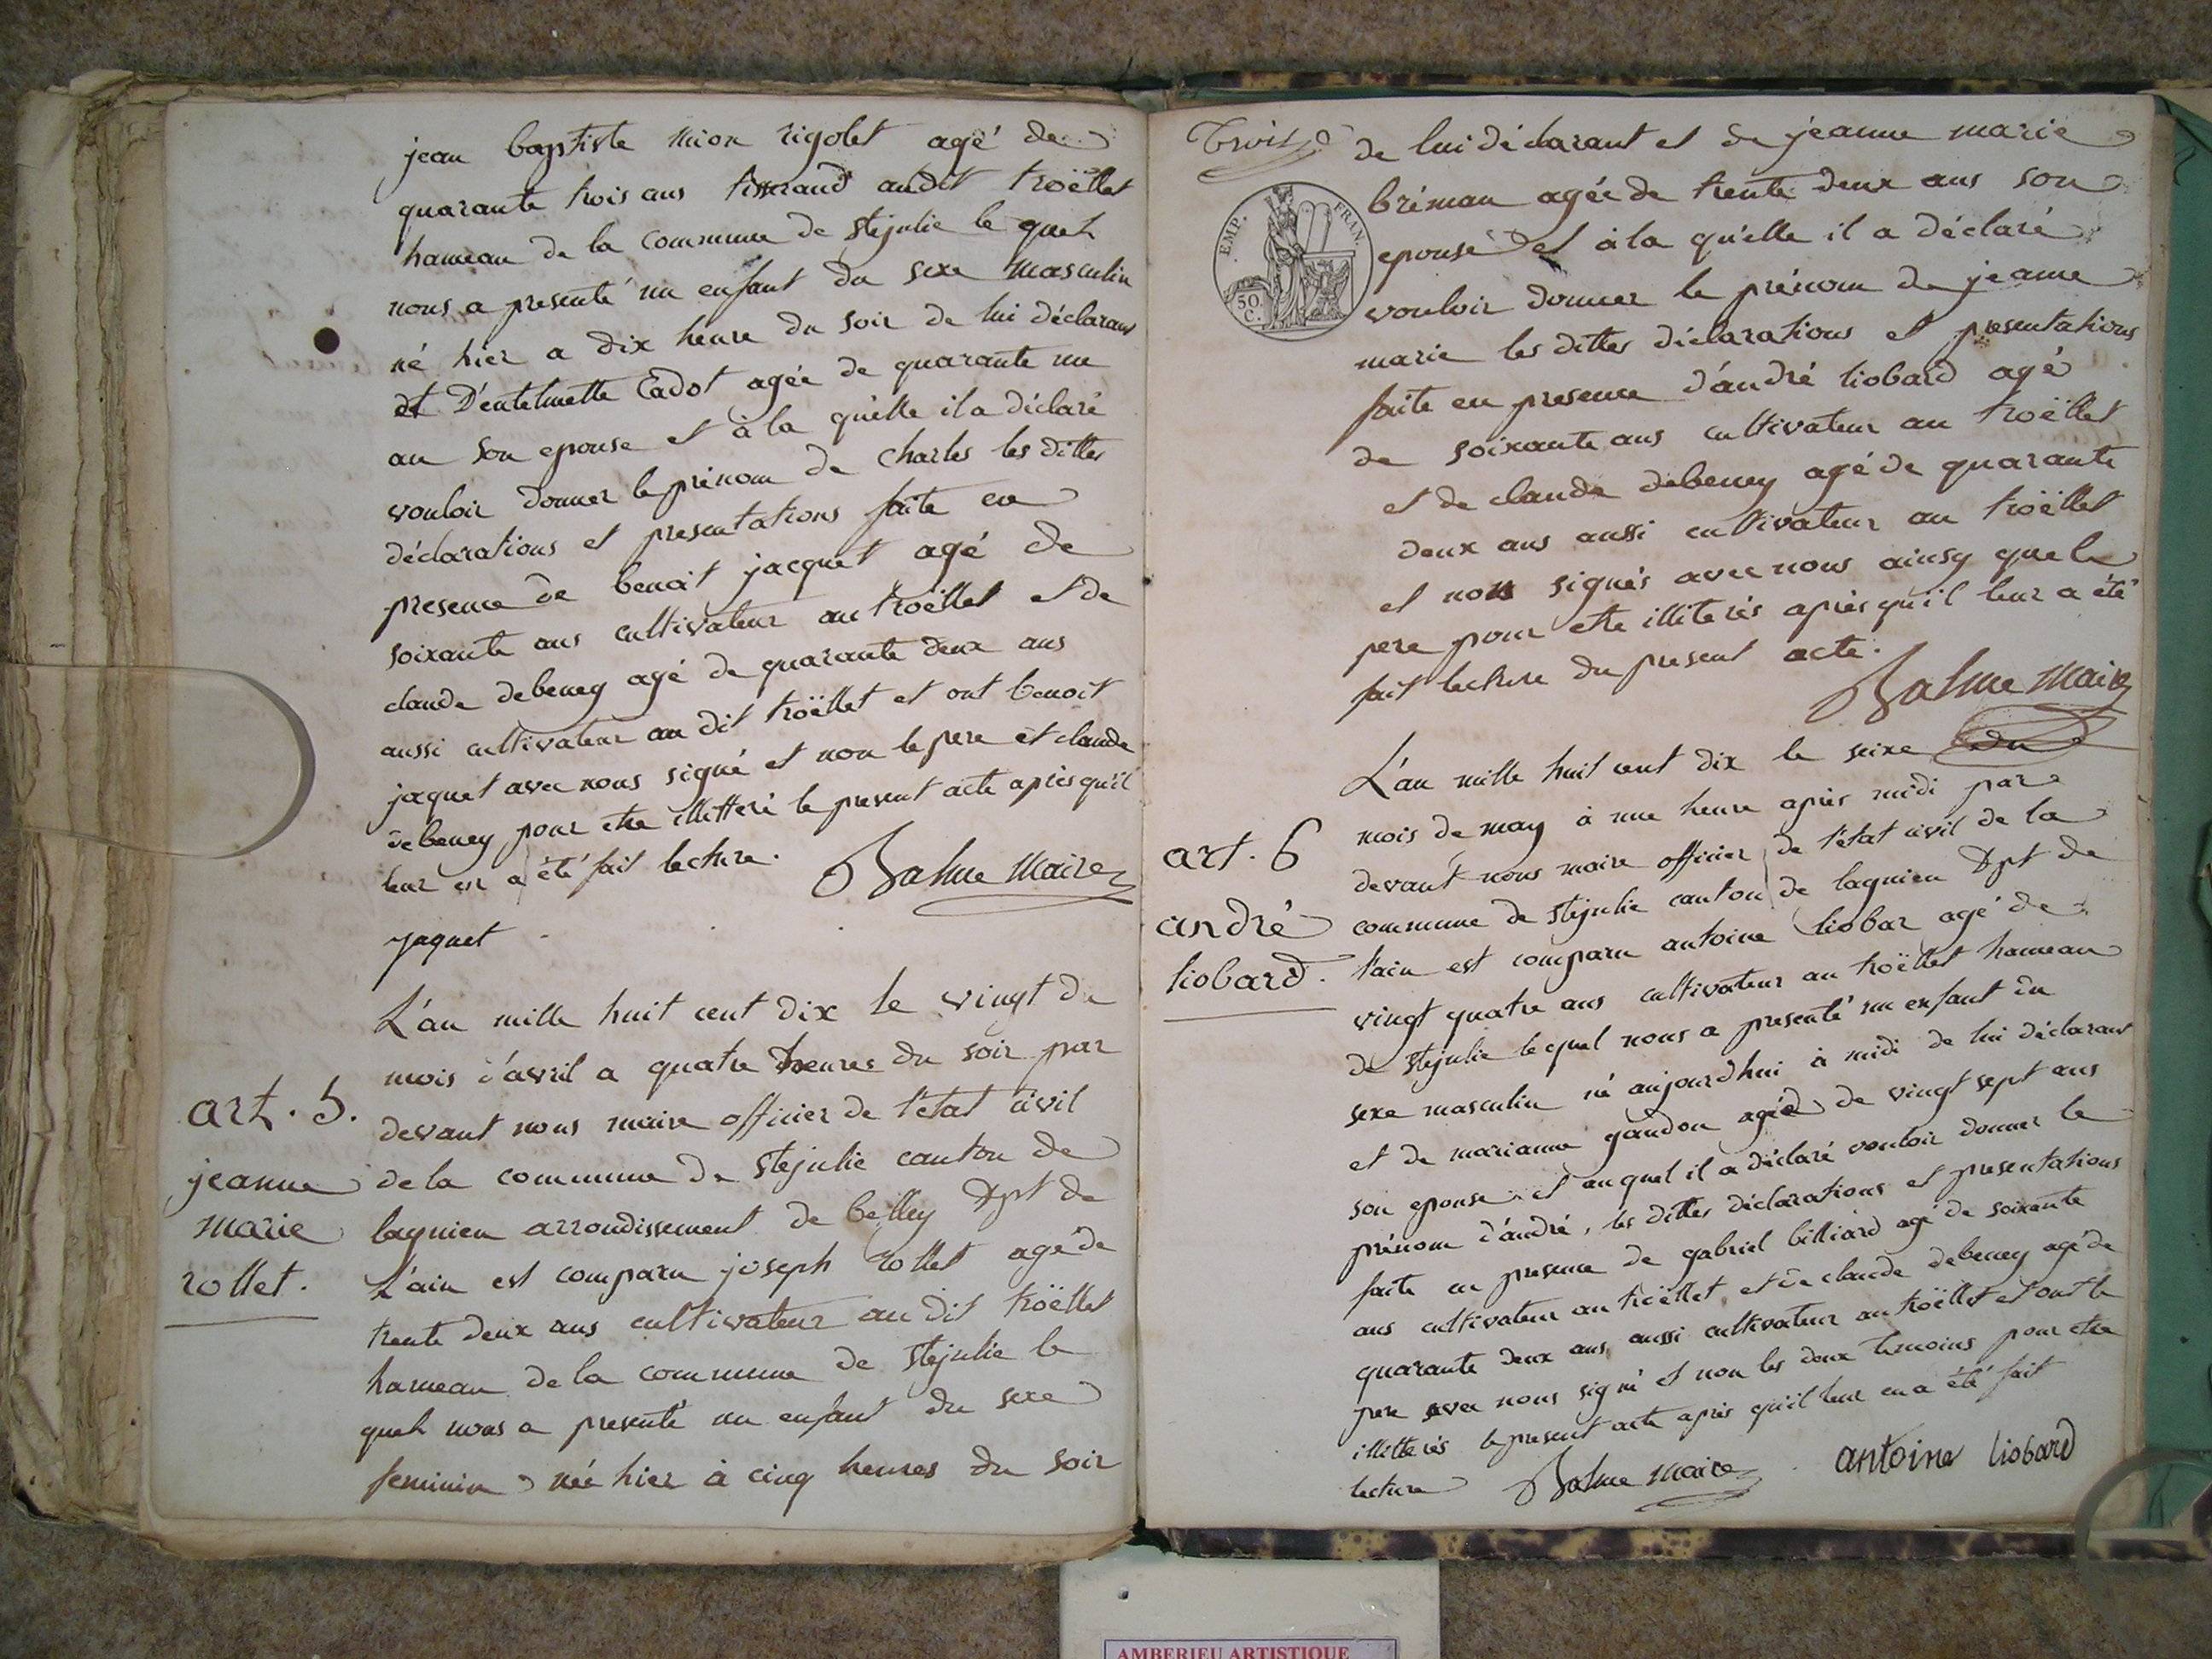 jean baptiste mion rigolet agé de
quarante trois ans tisserand audit troëllet
hameau de la commune de stejulie le quel
nous a presenté un enfant du sexe masculin
né hier a dix heure du soir de lui déclarant
et D'entelmette Cadot agée de quarante un
an son epouse et à la qu'elle il a déclaré
vouloir donner le prénom de Charles les dittes
déclarations et presentations faite en
presence de benoit jacquet agé de
soixante ans cultivateur au troëllet et de
claude debeney agé de quarante deux ans
aussi cultivateur au dit troëllet et ont benoit
jaquet avec nous signé et non le pere et claude
debeney pour etre illitteré le present acte après qu'il
leur en a été fait lecture. Balme Maire
jaquet
art. 5.
jeanne
marie
rollet.
L'an mille huit cent dix le vingt du
mois d'avril a quatre heures du soir par
devant nous maire officier de l'état civil
de la commune de stejulie canton de
lagnieu arrondissement de belley Dpt de
L'ain est comparu joseph rollet agé de
trente deux ans cultivateur au dit troëllet
hameau de la commune de stejulie le
quel nous a presenté un enfant du sexe
feminin née hier à cinq heures du soir
Trois
EMP. FRAN.
50 C.
de lui déclarant et de jeanne marie
bréman agée de trente deux ans son
epouse et à la qu'elle il a déclaré
vouloir donner le prénom de jeanne
marie les dittes déclarations et presentations
faite en presence d'andré liobard agé
de soixante ans cultivateur au troëllet
et de claude debeney agé de quarante
deux ans aussi cultivateur au troëllet
et non signés avec nous ainsy que le
pere pour etre illiterés après qu'il leur a été
fait lecture du present acte.
Balme Maire
art. 6
andré
liobard.
L'an mille huit cent dix le seixe du
mois de may à une heure après midi par
devant nous maire officier de l'état civil de la
commune de stejulie canton de lagnieu Dpt de
l'ain est comparu antoine liobar agé de
vingt quatre ans cultivateur au troëllet hameau
de stejulie lequel nous a presenté un enfant du
sexe masculin né aujourdhui à midi de lui déclarant
et de marianne gandon agée de vingt sept ans
son epouse et auquel il a déclaré vouloir donner le
prénom d'andré, les dittes déclarations et presentations
faite en presence de gabriel billiard agé de soixante
ans cultivateur au troëllet et de claude debeney agé de
quarante deux ans aussi cultivateur au troëllet et ont le
pere avec nous signé et non les deux temoins pour etre
illitterés le present acte après qu'il leur en a été fait
lecture Balme Maire antoine liobard
AMBERIEU ARTISTIQUE